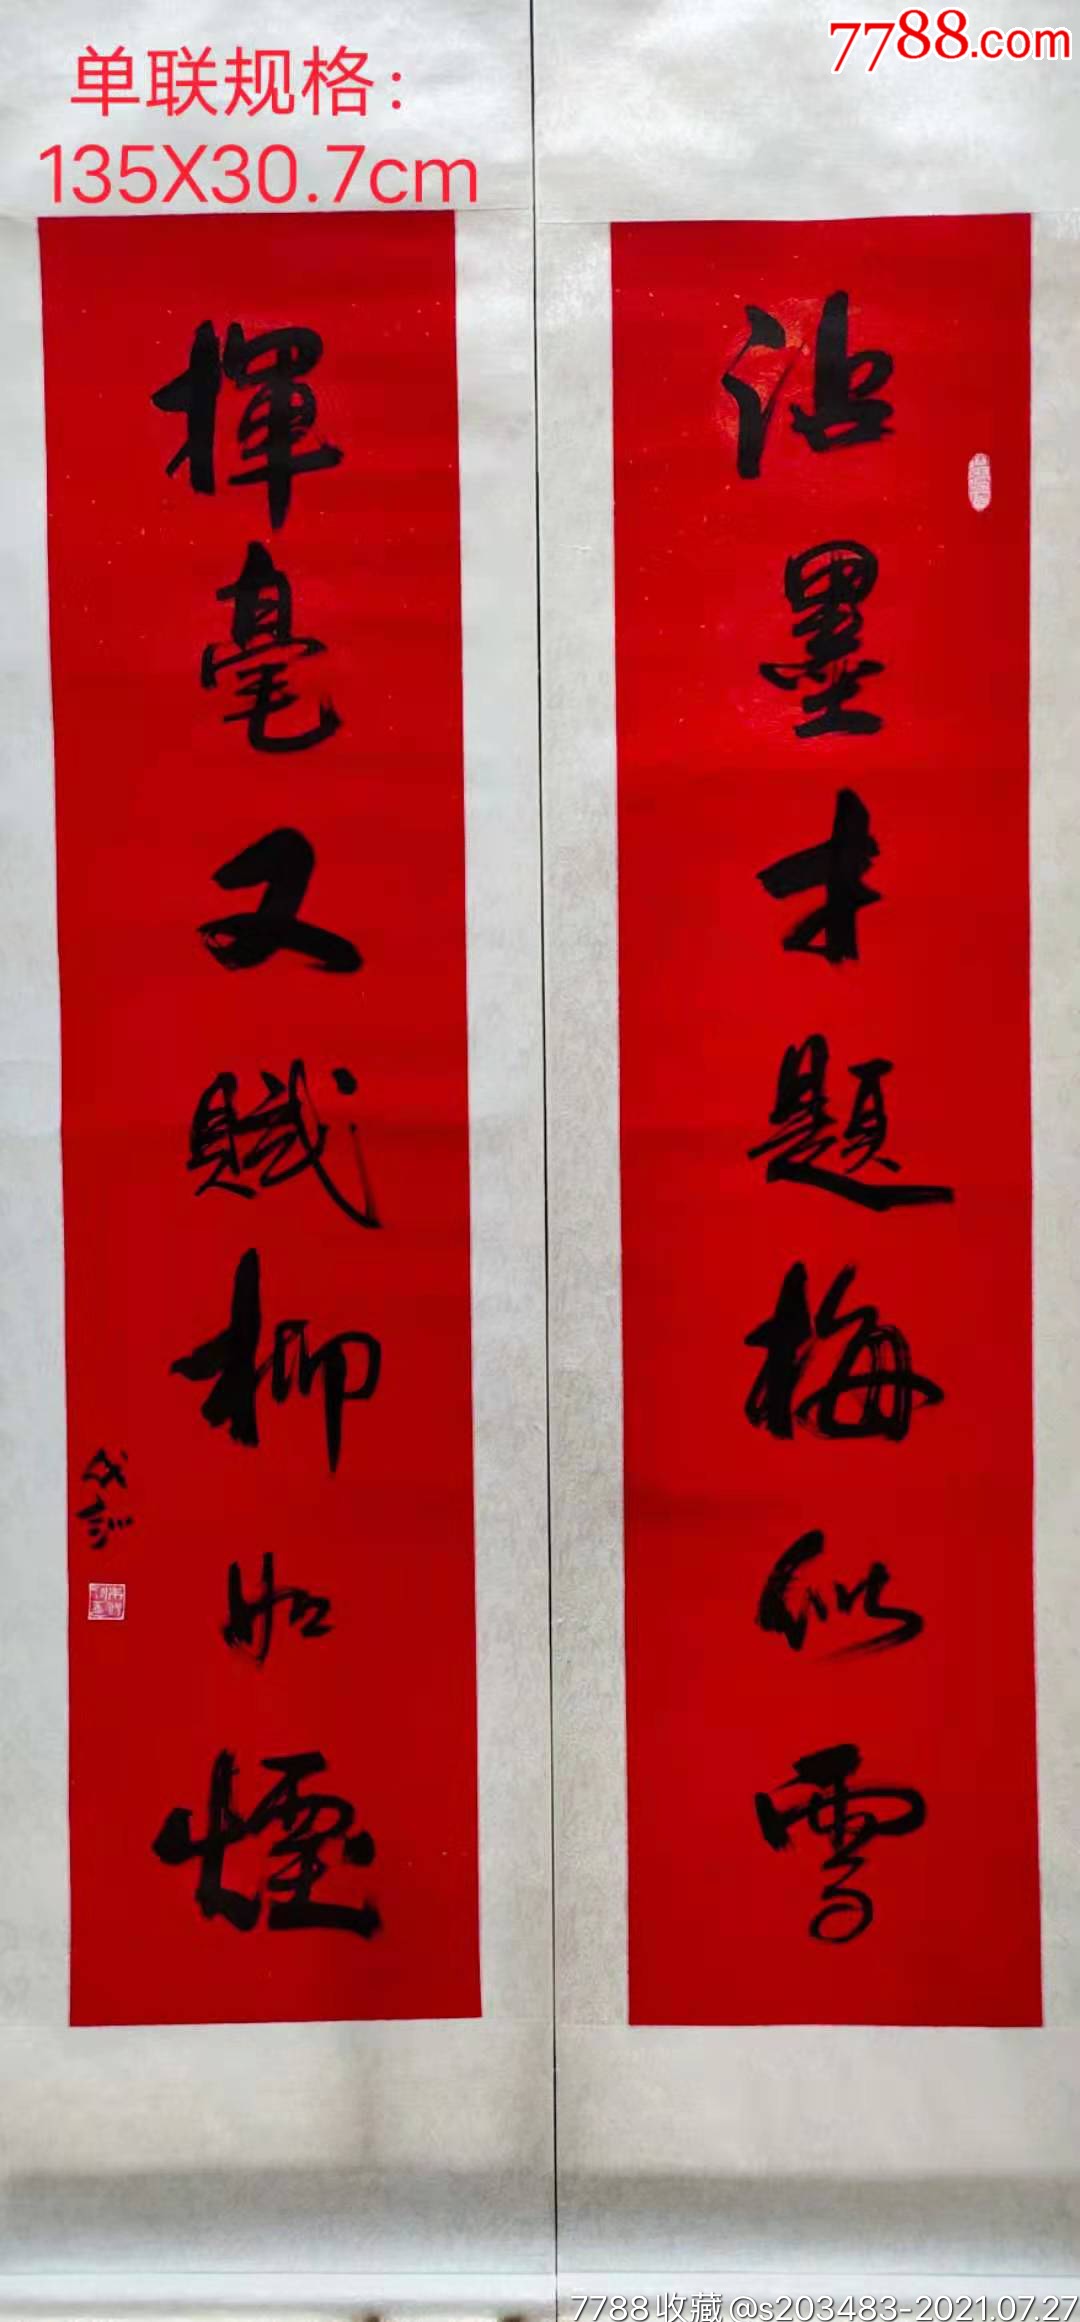 7788.com
单联规格：
135X30.7cm
沾墨才题梅似雪
揮毫又賦柳如煙
7788收藏@s203483-2021.07.27